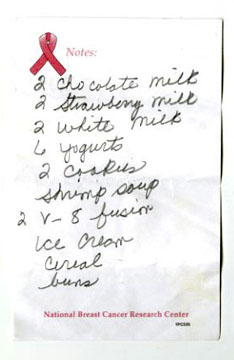 Notes:
2 chocolate milk
2 strawberry milk
2 white milk
6 yogurts
2 cookies
shrimp soup
2 V-8 fusion
Ice Cream
cereal
buns
National Breast Cancer Research Center